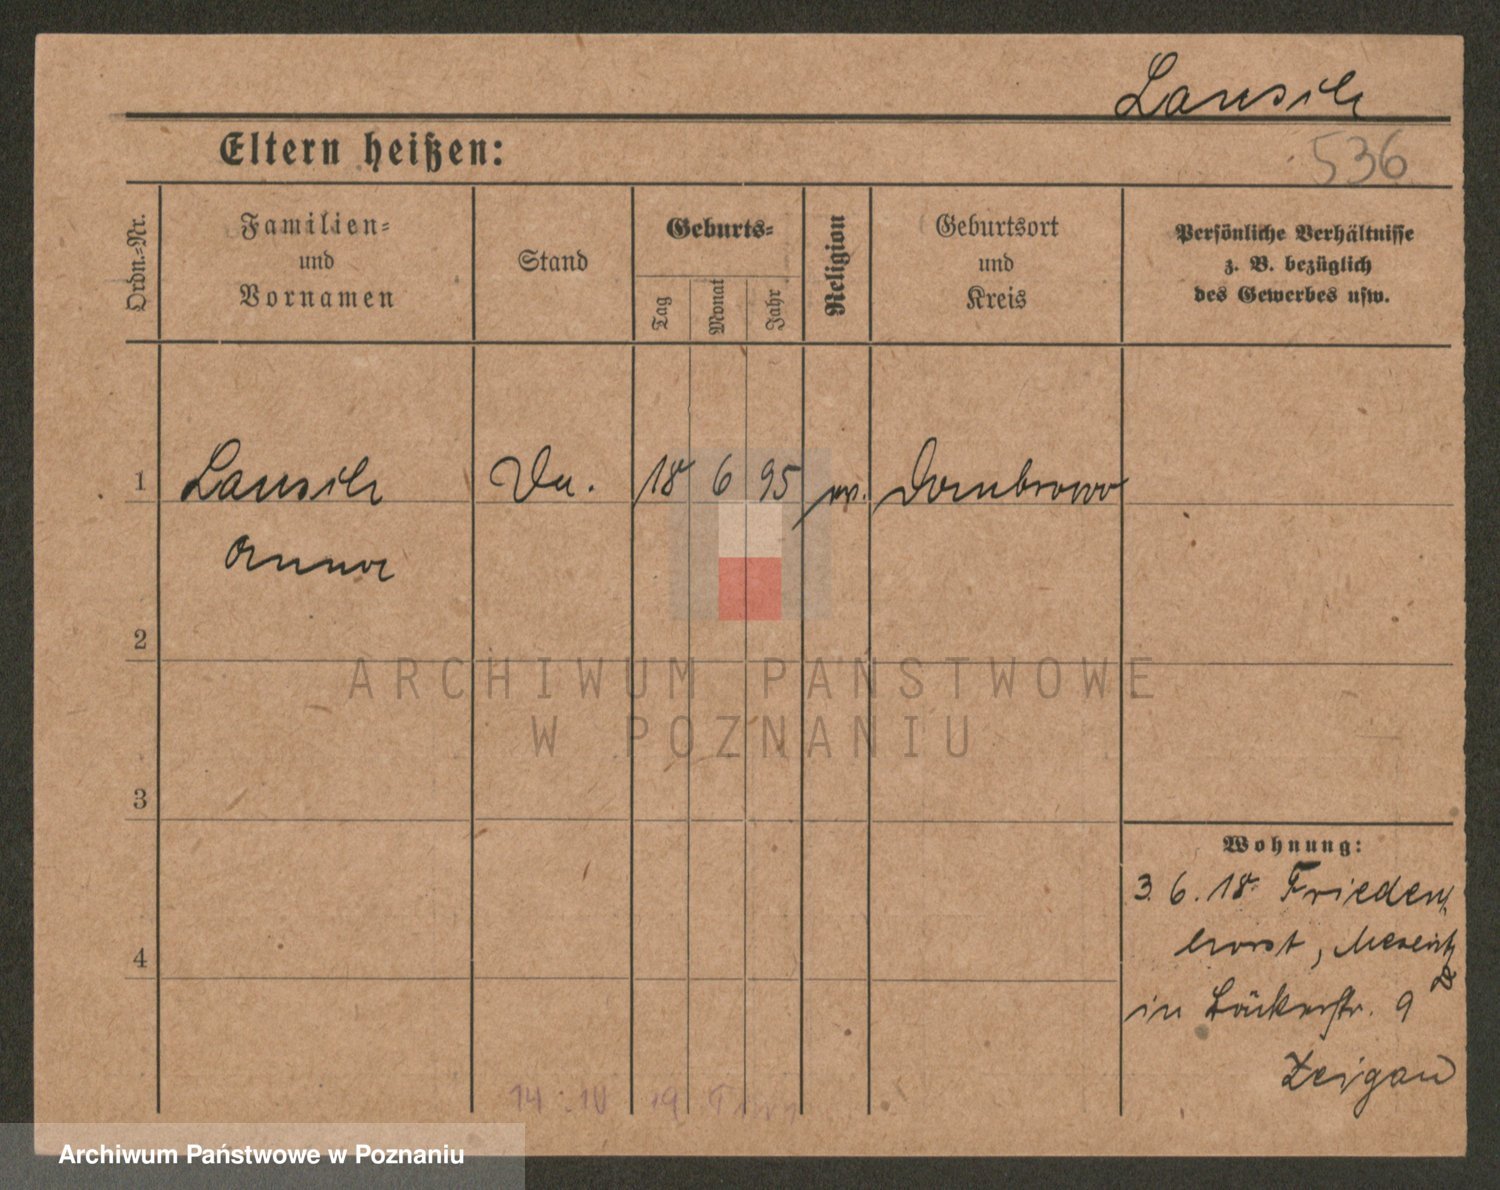 Lausch
Eltern heißen:
536
Ordn.-Nr.
Familien-
und
Vornamen
Stand
Geburts-
Tag
Monat
Jahr
Religion
Geburtsort
und
Kreis
Persönliche Verhältnisse
z. B. bezüglich
des Gewerbes usw.
1
18 6 95
Dombrowo
Anna
2
ARCHIWUM PAŃSTWOWE
W POZNANIU
3
Wohnung:
3. 6. 18. Frieden
horst, Meseritz
4
in Bäckerstr. 9
14 IV 19
Archiwum Państwowe w Poznaniu